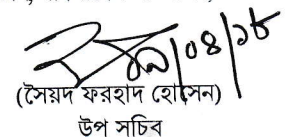 ০৪/১৮
(সৈয়দ ফরহাদ হোসেন)
উপ সচিব